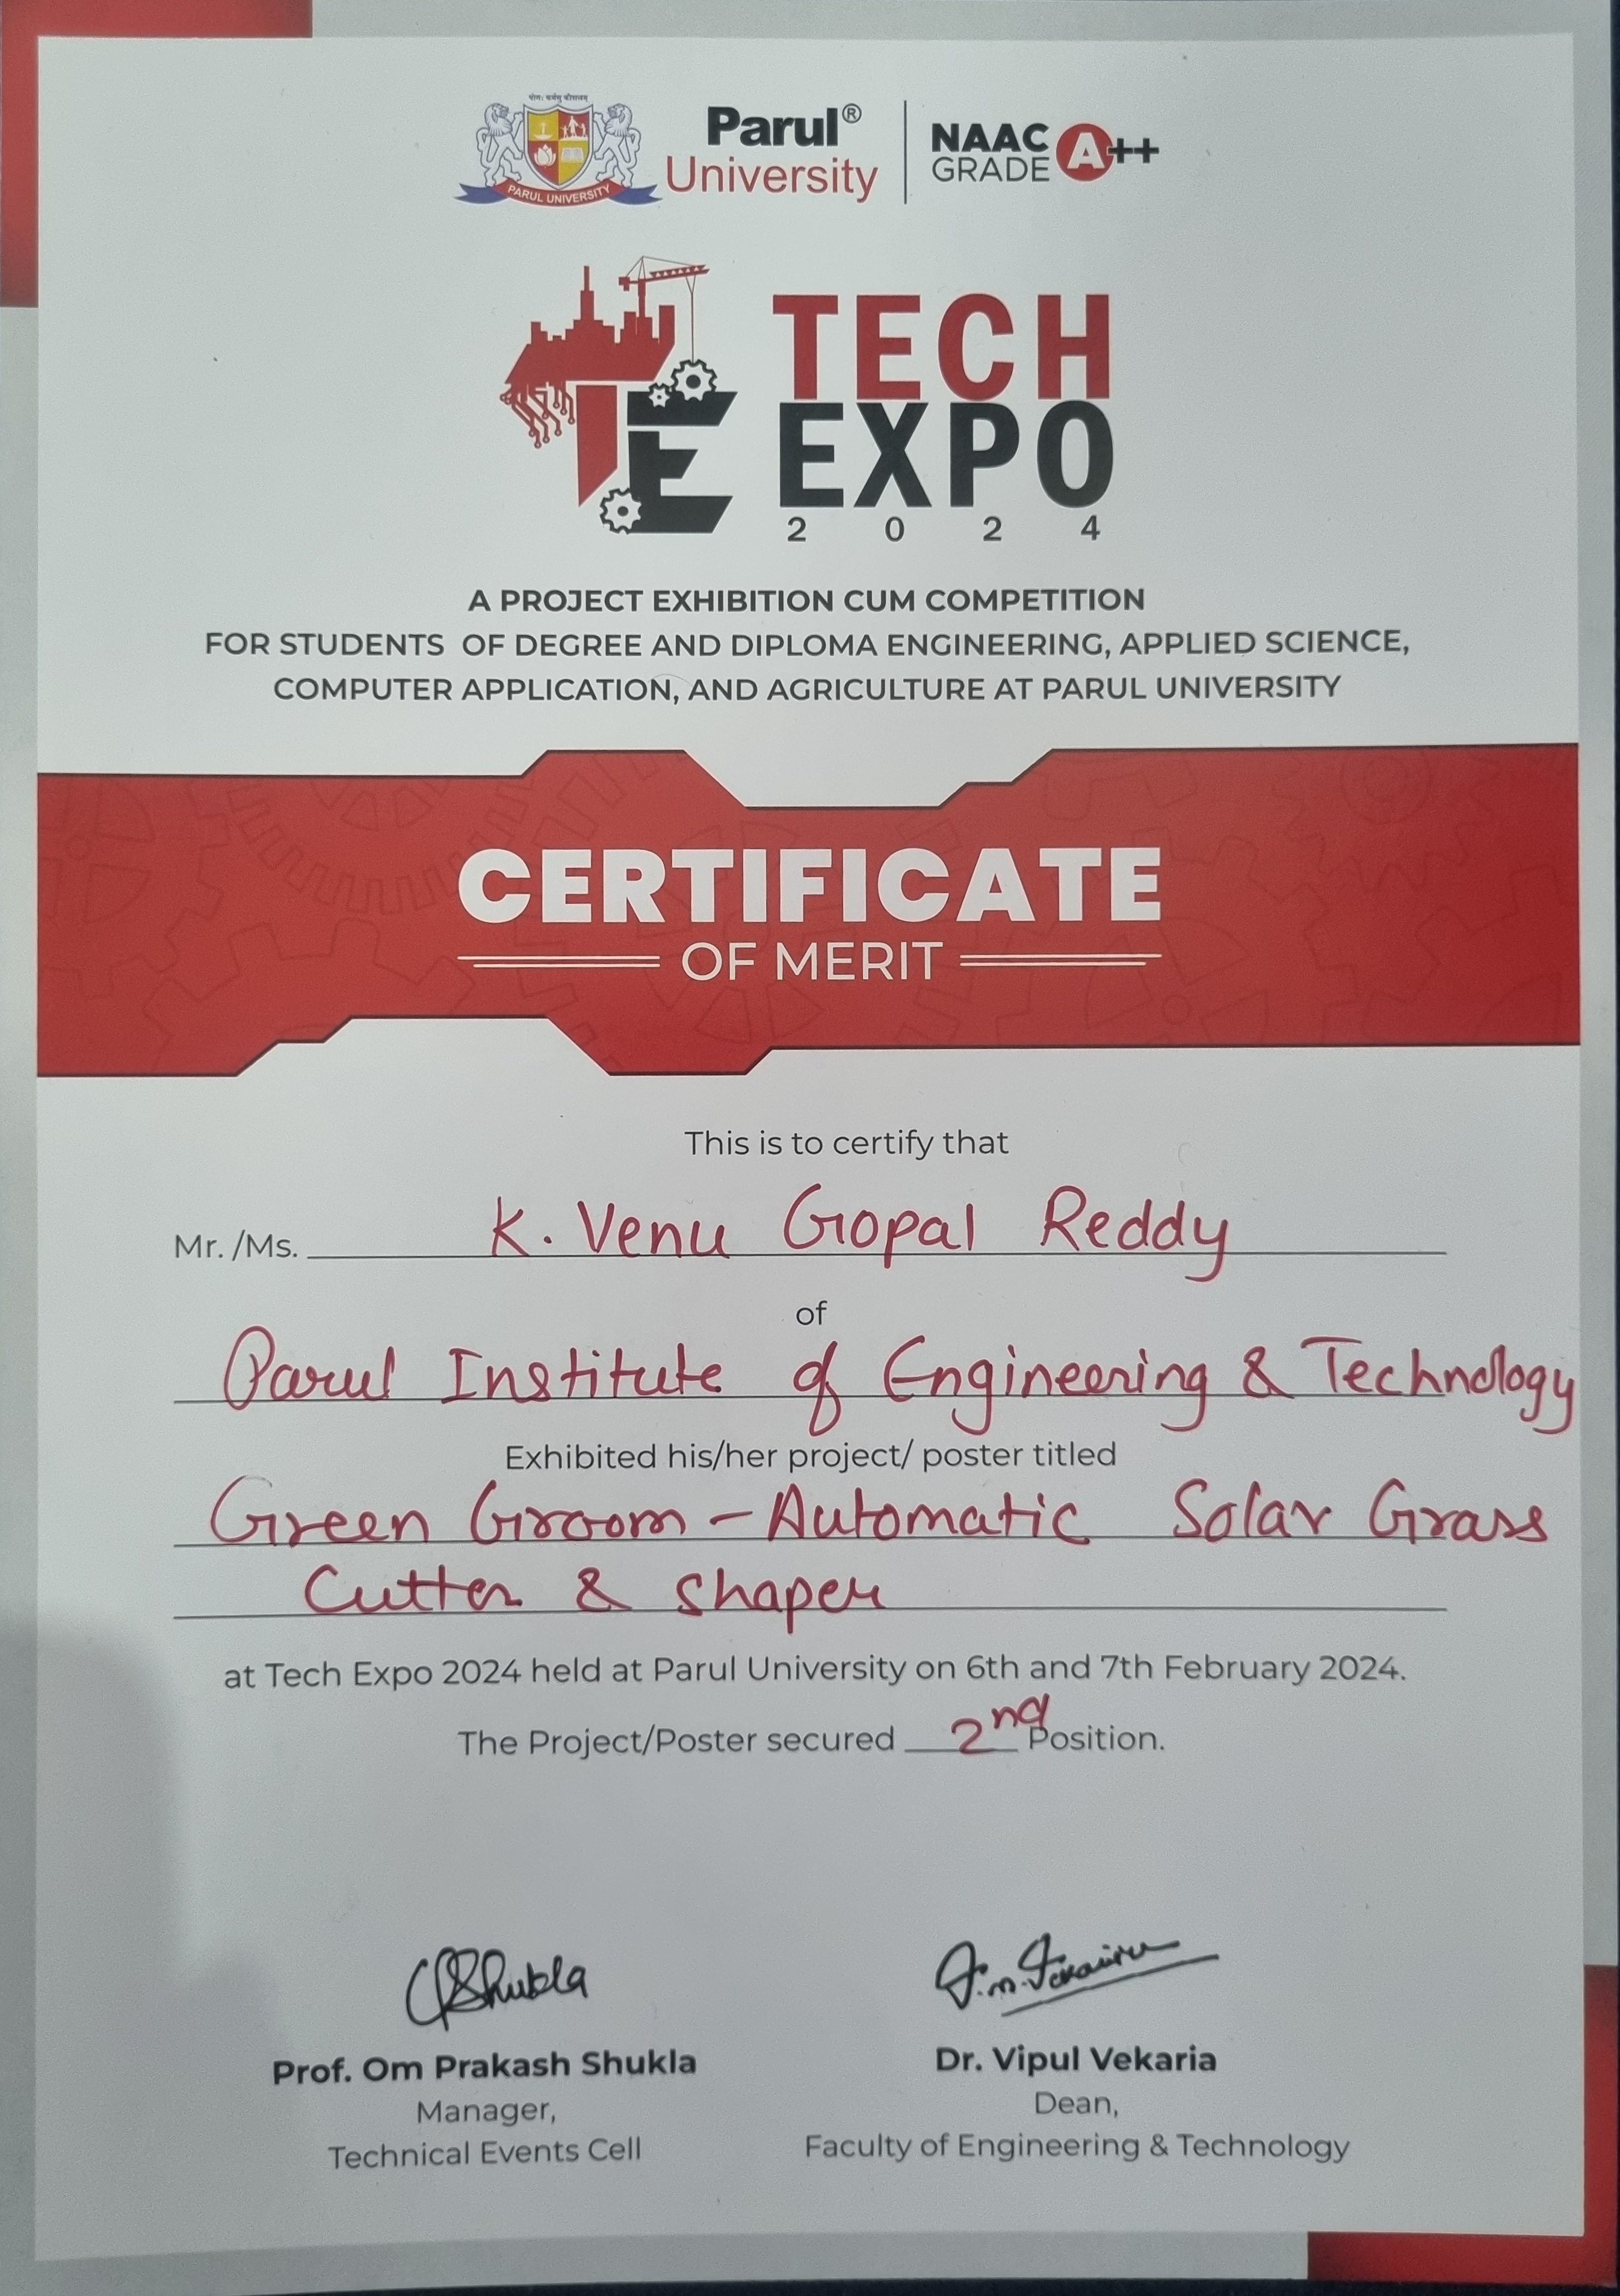 योगः कर्मसु कौशलम्
PARUL UNIVERSITY
Parul®
University
NAAC
GRADE A++
TE
TECH
EXPO
2024
A PROJECT EXHIBITION CUM COMPETITION
FOR STUDENTS OF DEGREE AND DIPLOMA ENGINEERING, APPLIED SCIENCE,
COMPUTER APPLICATION, AND AGRICULTURE AT PARUL UNIVERSITY
CERTIFICATE
OF MERIT
This is to certify that
Mr. /Ms. K. Venu Gopal Reddy
of
Parul Institute of Engineering & Technology
Exhibited his/her project/ poster titled
Green Groom - Automatic Solar Grass
Cutter & Shaper
at Tech Expo 2024 held at Parul University on 6th and 7th February 2024.
The Project/Poster secured 2nd Position.
Prof. Om Prakash Shukla
Manager,
Technical Events Cell
Dr. Vipul Vekaria
Dean,
Faculty of Engineering & Technology